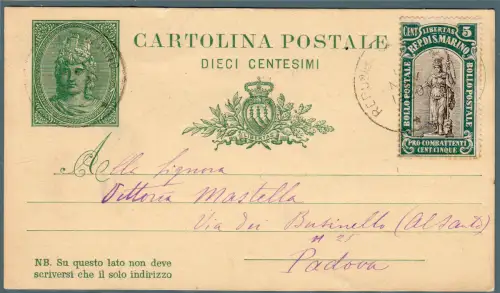 CARTOLINA POSTALE
DIECI CENTESIMI
CENT. LIBERTAS 5
REP. DI S. MARINO
BOLLO POSTALE
BOLLO POSTALE
PRO COMBATTENTI
CENT. CINQUE
REPU
Alla Signora
Vittoria Mastella
Via dei Businello (al Santo)
Padova
NB. Su questo lato non deve
scriversi che il solo indirizzo